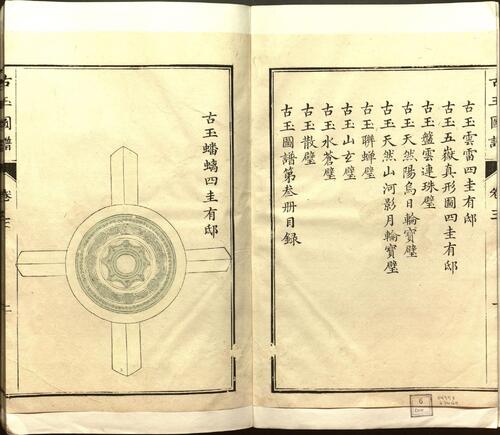 古玉雲雷四圭有邸
古玉五嶽真形圖四圭有邸
古玉盤雲連珠璧
古玉天然陽烏日輪寶璧
古玉天然山河影月輪寶璧
古玉聯蟬璧
古玉山玄璧
古玉水蒼璧
古玉散璧
古玉圖譜第叁册目録
古玉蟠螭四圭有邸
古玉圖譜
6